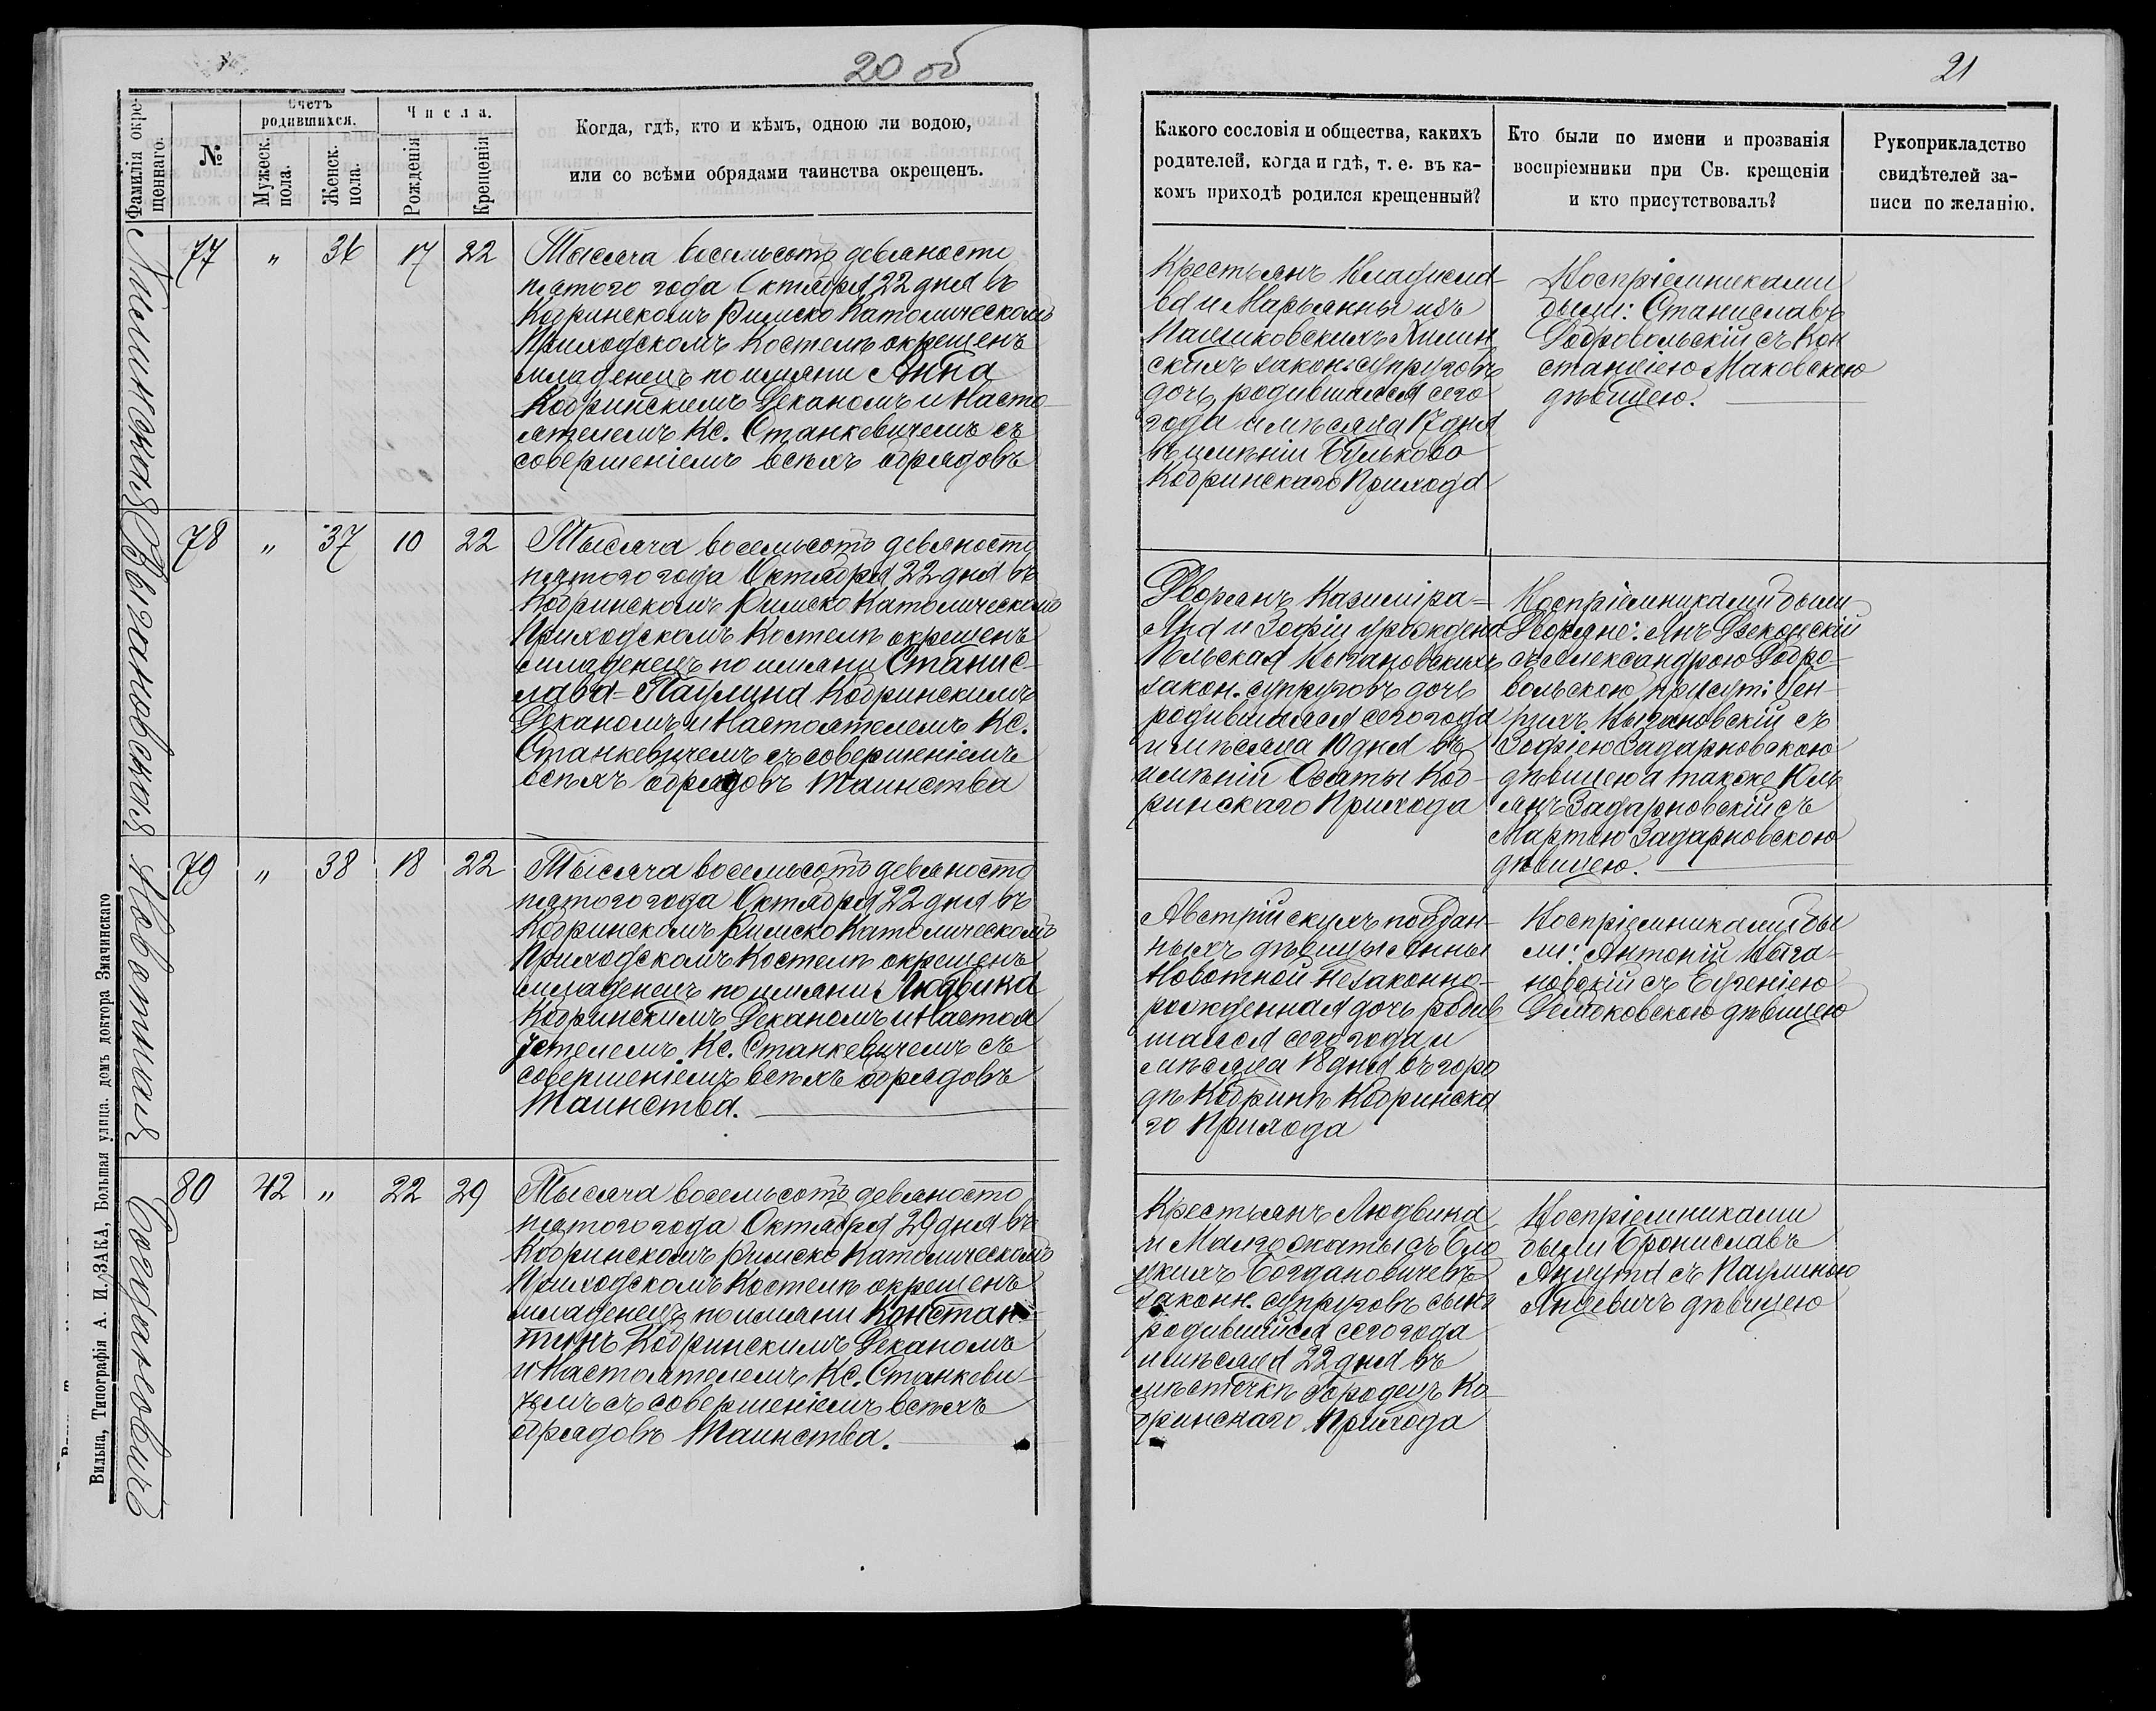 20 об
Фамилія окре-
щеннаго.
№
Счетъ
родившихся.
Мужеск.
пола.
Женск.
пола.
Числа.
Рожденія
Крещенія
Когда, гдѣ, кто и кѣмъ, одною ли водою,
или со всѣми обрядами таинства окрещенъ.
77 " 36 17 22
Тысяча восемьсотъ девяносто
пятого года Октября 22 дня въ
Кобринскомъ Римско Католическомъ
Приходскомъ Костелѣ окрещенъ
младенецъ по имяни Анна
Кобринскимъ Деканомъ и Насто-
ятелемъ Кс. Станкевичемъ съ
совершеніемъ всѣхъ обрядовъ
78 " 37 10 22
Цыгановская
Тысяча восемьсотъ девяносто
пятого года Октября 22 дня въ
Кобринскомъ Римско Католическомъ
Приходскомъ Костелѣ окрещенъ
младенецъ по имяни Станис-
лава-Паулина Кобринскимъ
Деканомъ и Настоятелемъ Кс.
Станкевичемъ съ совершеніемъ
всѣхъ обрядовъ Таинства
79 " 38 18 22
Новотная
Тысяча восемьсотъ девяносто
пятого года Октября 22 дня въ
Кобринскомъ Римско Католическомъ
Приходскомъ Костелѣ окрещенъ
младенецъ по имяни Людвика
Кобринскимъ Деканомъ и Настоя
ятелемъ Кс. Станкевичемъ съ
совершеніемъ всѣхъ обрядовъ
Таинства.
80 42 " 22 29
Богдановичъ
Тысяча восемьсотъ девяносто
пятого года Октября 29 дня въ
Кобринскомъ Римско Католическомъ
Приходскомъ Костелѣ окрещенъ
младенецъ по имяни Констан-
тинъ Кобринскимъ Деканомъ
и Настоятелемъ Кс. Станкеви-
чемъ съ совершеніемъ всѣхъ
обрядовъ Таинства.
Вильна, Типографія А. И. ЗАКА, Большая улица. домъ доктора Значинскаго
21
Какого сословія и общества, какихъ
родителей, когда и гдѣ, т. е. въ ка-
комъ приходѣ родился крещенный?
Кто были по имени и прозванія
воспріемники при Св. крещеніи
и кто присутствовалъ?
Рукоприкладство
свидѣтелей за-
писи по желанію.
Крестьянъ Владисла-
ва и Марьянны изъ
Хилин
скихъ закон. супруговъ
дочь, родившаяся сего
года и мѣсяца 17 дня
въ имѣніи Бульково
Кобринскаго Прихода
Воспріемниками
были: Станиславъ
Добровольскій съ Кон
станціею Маковскою
дѣвицею.
Дворянъ Казиміра-
Яна и Зофіи урожденн
Цыгановскихъ
закон. супруговъ дочь
родившаяся сего года
и мѣсяца 10 дня въ
имѣніи Осяты Коб-
ринскаго Прихода
Воспріемниками были
Дворяне: Янъ
съ Александрою Добро-
вольскою присут: Ген-
рихъ Цыгановскій съ
Зофіею Задарновскою
дѣвицею а также Юль
янъ Задарновскій съ
Мартою Задарновскою
дѣвицею.
Австрійскихъ поддан-
ныхъ дѣвицы Анны
Новотной незаконно-
рожденная дочь родив
шаяся сего года и
мѣсяца 18 дня въ горо
дѣ Кобринѣ Кобринска
го Прихода
Воспріемниками бы
ли: Антоній Цыга-
новскій съ Евгеніею
дѣвицею
Крестьянъ Людвика
и Малгожаты съ
Богдановичевъ
законн. супруговъ сынъ
родившійся сего года
и мѣсяца 22 дня въ
мѣстечкѣ Городецъ Ко-
бринскаго Прихода
Воспріемниками
были Брониславъ
съ Паулиною
Янцевичъ дѣвицею